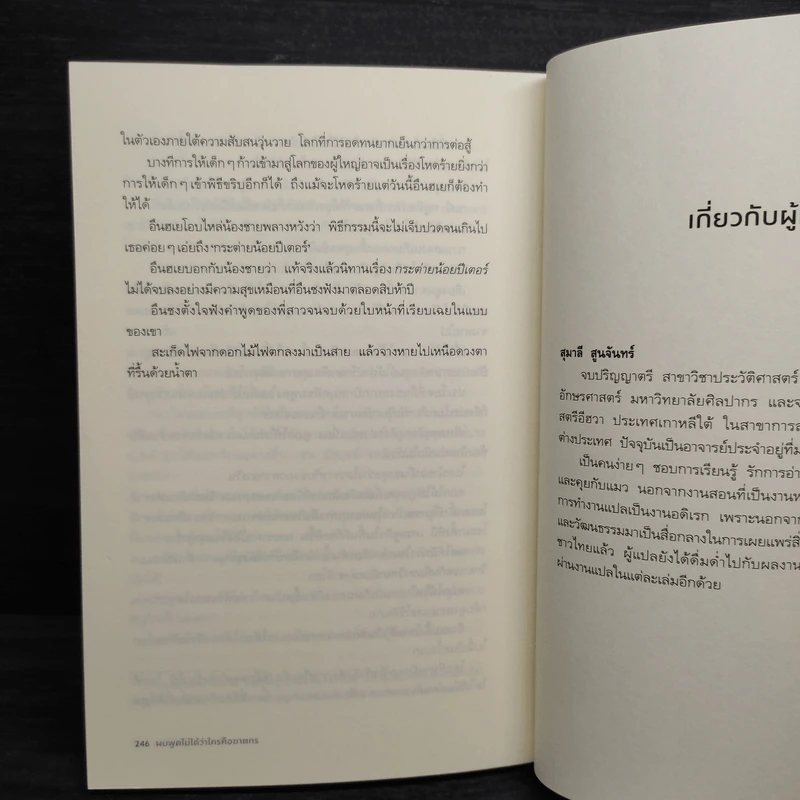 ในตัวเองภายใต้ความสับสนวุ่นวาย โลกที่การอดทนยากเย็นกว่าการต่อสู้
บางทีการให้เด็กๆ ก้าวเข้ามาสู่โลกของผู้ใหญ่อาจเป็นเรื่องโหดร้ายยิ่งกว่า
การให้เด็กๆ เข้าพิธีขริบอีกก็ได้ ถึงแม้จะโหดร้ายแต่วันนี้อึนฮเยก็ต้องทำ
ให้ได้
อึนฮเยโอบไหล่น้องชายพลางหวังว่า พิธีกรรมนี้จะไม่เจ็บปวดจนเกินไป
เธอค่อยๆ เอ่ยถึง ‘กระต่ายน้อยปีเตอร์’
อึนฮเยบอกกับน้องชายว่า แท้จริงแล้วนิทานเรื่อง กระต่ายน้อยปีเตอร์
ไม่ได้จบลงอย่างมีความสุขเหมือนที่อึนซงฟังมาตลอดสิบห้าปี
อึนซงตั้งใจฟังคำพูดของพี่สาวจนจบด้วยใบหน้าที่เรียบเฉยในแบบ
ของเขา
สะเก็ดไฟจากดอกไม้ไฟตกลงมาเป็นสาย แล้วจางหายไปเหนือดวงตา
ที่รื้นด้วยน้ำตา
246 ผมพูดไม่ได้ว่าใครคือฆาตกร
เกี่ยวกับผู้
สุมาลี สูนจันทร์
จบปริญญาตรี สาขาวิชาประวัติศาสตร์
อักษรศาสตร์ มหาวิทยาลัยศิลปากร และจ
สตรีอีฮวา ประเทศเกาหลีใต้ ในสาขาการส
ต่างประเทศ ปัจจุบันเป็นอาจารย์ประจำอยู่ที่ม
เป็นคนง่ายๆ ชอบการเรียนรู้ รักการอ่า
และคุยกับแมว นอกจากงานสอนที่เป็นงานห
การทำงานแปลเป็นงานอดิเรก เพราะนอกจา
และวัฒนธรรมมาเป็นสื่อกลางในการเผยแพร่สิ่
ชาวไทยแล้ว ผู้แปลยังได้ดื่มด่ำไปกับผลงาน
ผ่านงานแปลในแต่ละเล่มอีกด้วย